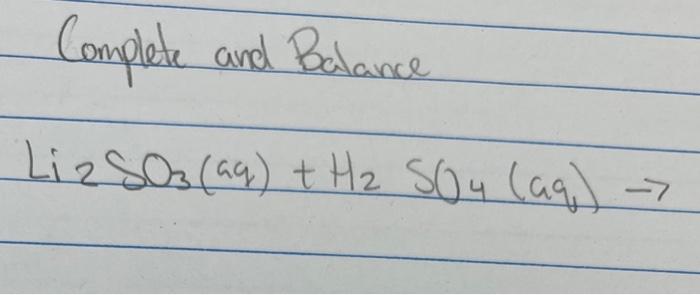 Complete and Balance
Li2SO3(aq) + H2 SO4 (aq) →